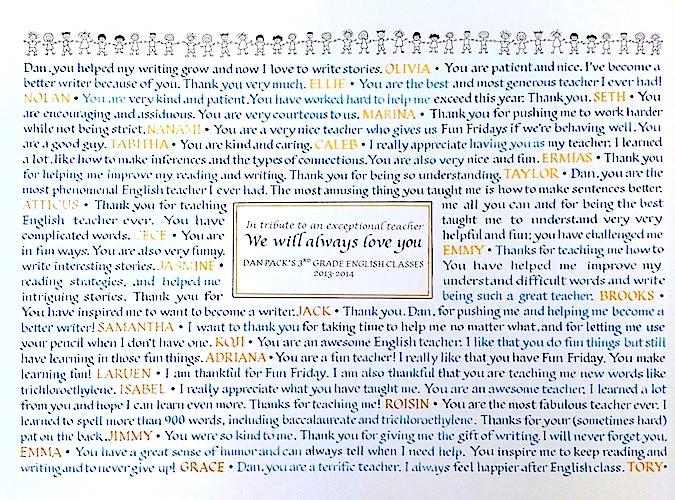 Dan, you helped my writing grow and now I love to write stories. OLIVIA • You are patient and nice. I've become a
better writer because of you. Thank you very much. ELLIE • You are the best and most generous teacher I ever had!
NOLAN • You are very kind and patient. You have worked hard to help me exceed this year. Thank you. SETH • You
are encouraging and assiduous. You are very courteous to us. MARINA • Thank you for pushing me to work harder
while not being strict. NANAMI • You are a very nice teacher who gives us Fun Fridays if we're behaving well. You
are a good guy. TABITHA • You are kind and caring. CALEB • I really appreciate having you as my teacher. I learned
a lot, like how to make inferences and the types of connections. You are also very nice and fun. ERMIAS • Thank you
for helping me improve my reading and writing. Thank you for being so understanding. TAYLOR • Dan, you are the
most phenomenal English teacher I ever had. The most amusing thing you taught me is how to make sentences better.
ATTICUS • Thank you for teaching me all you can and for being the best
English teacher ever. You have taught me to understand very very
complicated words. CECE • You are helpful and fun; you have challenged me
in fun ways. You are also very funny. EMMY • Thanks for teaching me how to
write interesting stories. JASMINE • You have helped me improve my
reading strategies, and helped me understand difficult words and write
intriguing stories. Thank you for being such a great teacher. BROOKS •
In tribute to an exceptional teacher
We will always love you
DAN PACK'S 3RD GRADE ENGLISH CLASSES
2013-2014
You have inspired me to want to become a writer. JACK • Thank you, Dan, for pushing me and helping me become a
better writer! SAMANTHA • I want to thank you for taking time to help me no matter what, and for letting me use
your pencil when I don't have one. KOJI • You are an awesome English teacher. I like that you do fun things but still
have learning in those fun things. ADRIANA • You are a fun teacher! I really like that you have Fun Friday. You make
learning fun! LARUEN • I am thankful for Fun Friday. I am also thankful that you are teaching me new words like
trichloroethylene. ISABEL • I really appreciate what you have taught me. You are an awesome teacher. I learned a lot
from you and hope I can learn even more. Thanks for teaching me! ROISIN • You are the most fabulous teacher ever. I
learned to spell more than 900 words, including baccalaureate and trichloroethylene. Thanks for your (sometimes hard)
pat on the back. JIMMY • You were so kind to me. Thank you for giving me the gift of writing. I will never forget you.
EMMA • You have a great sense of humor and can always tell when I need help. You inspire me to keep reading and
writing and to never give up! GRACE • Dan, you are a terrific teacher. I always feel happier after English class. TORY•